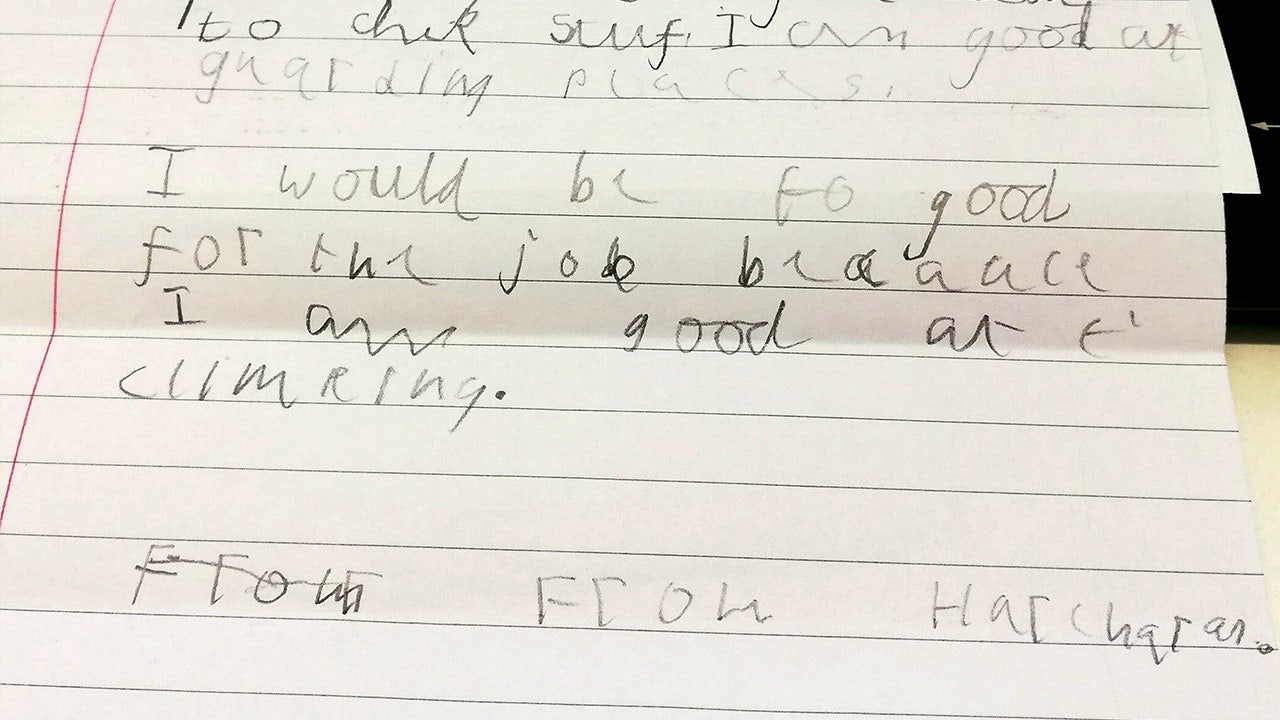 to chek stuf. I am good at
guarding places.
I would be fo good
for the job becaauce
I am good at
climeing.
From From Harcharan.